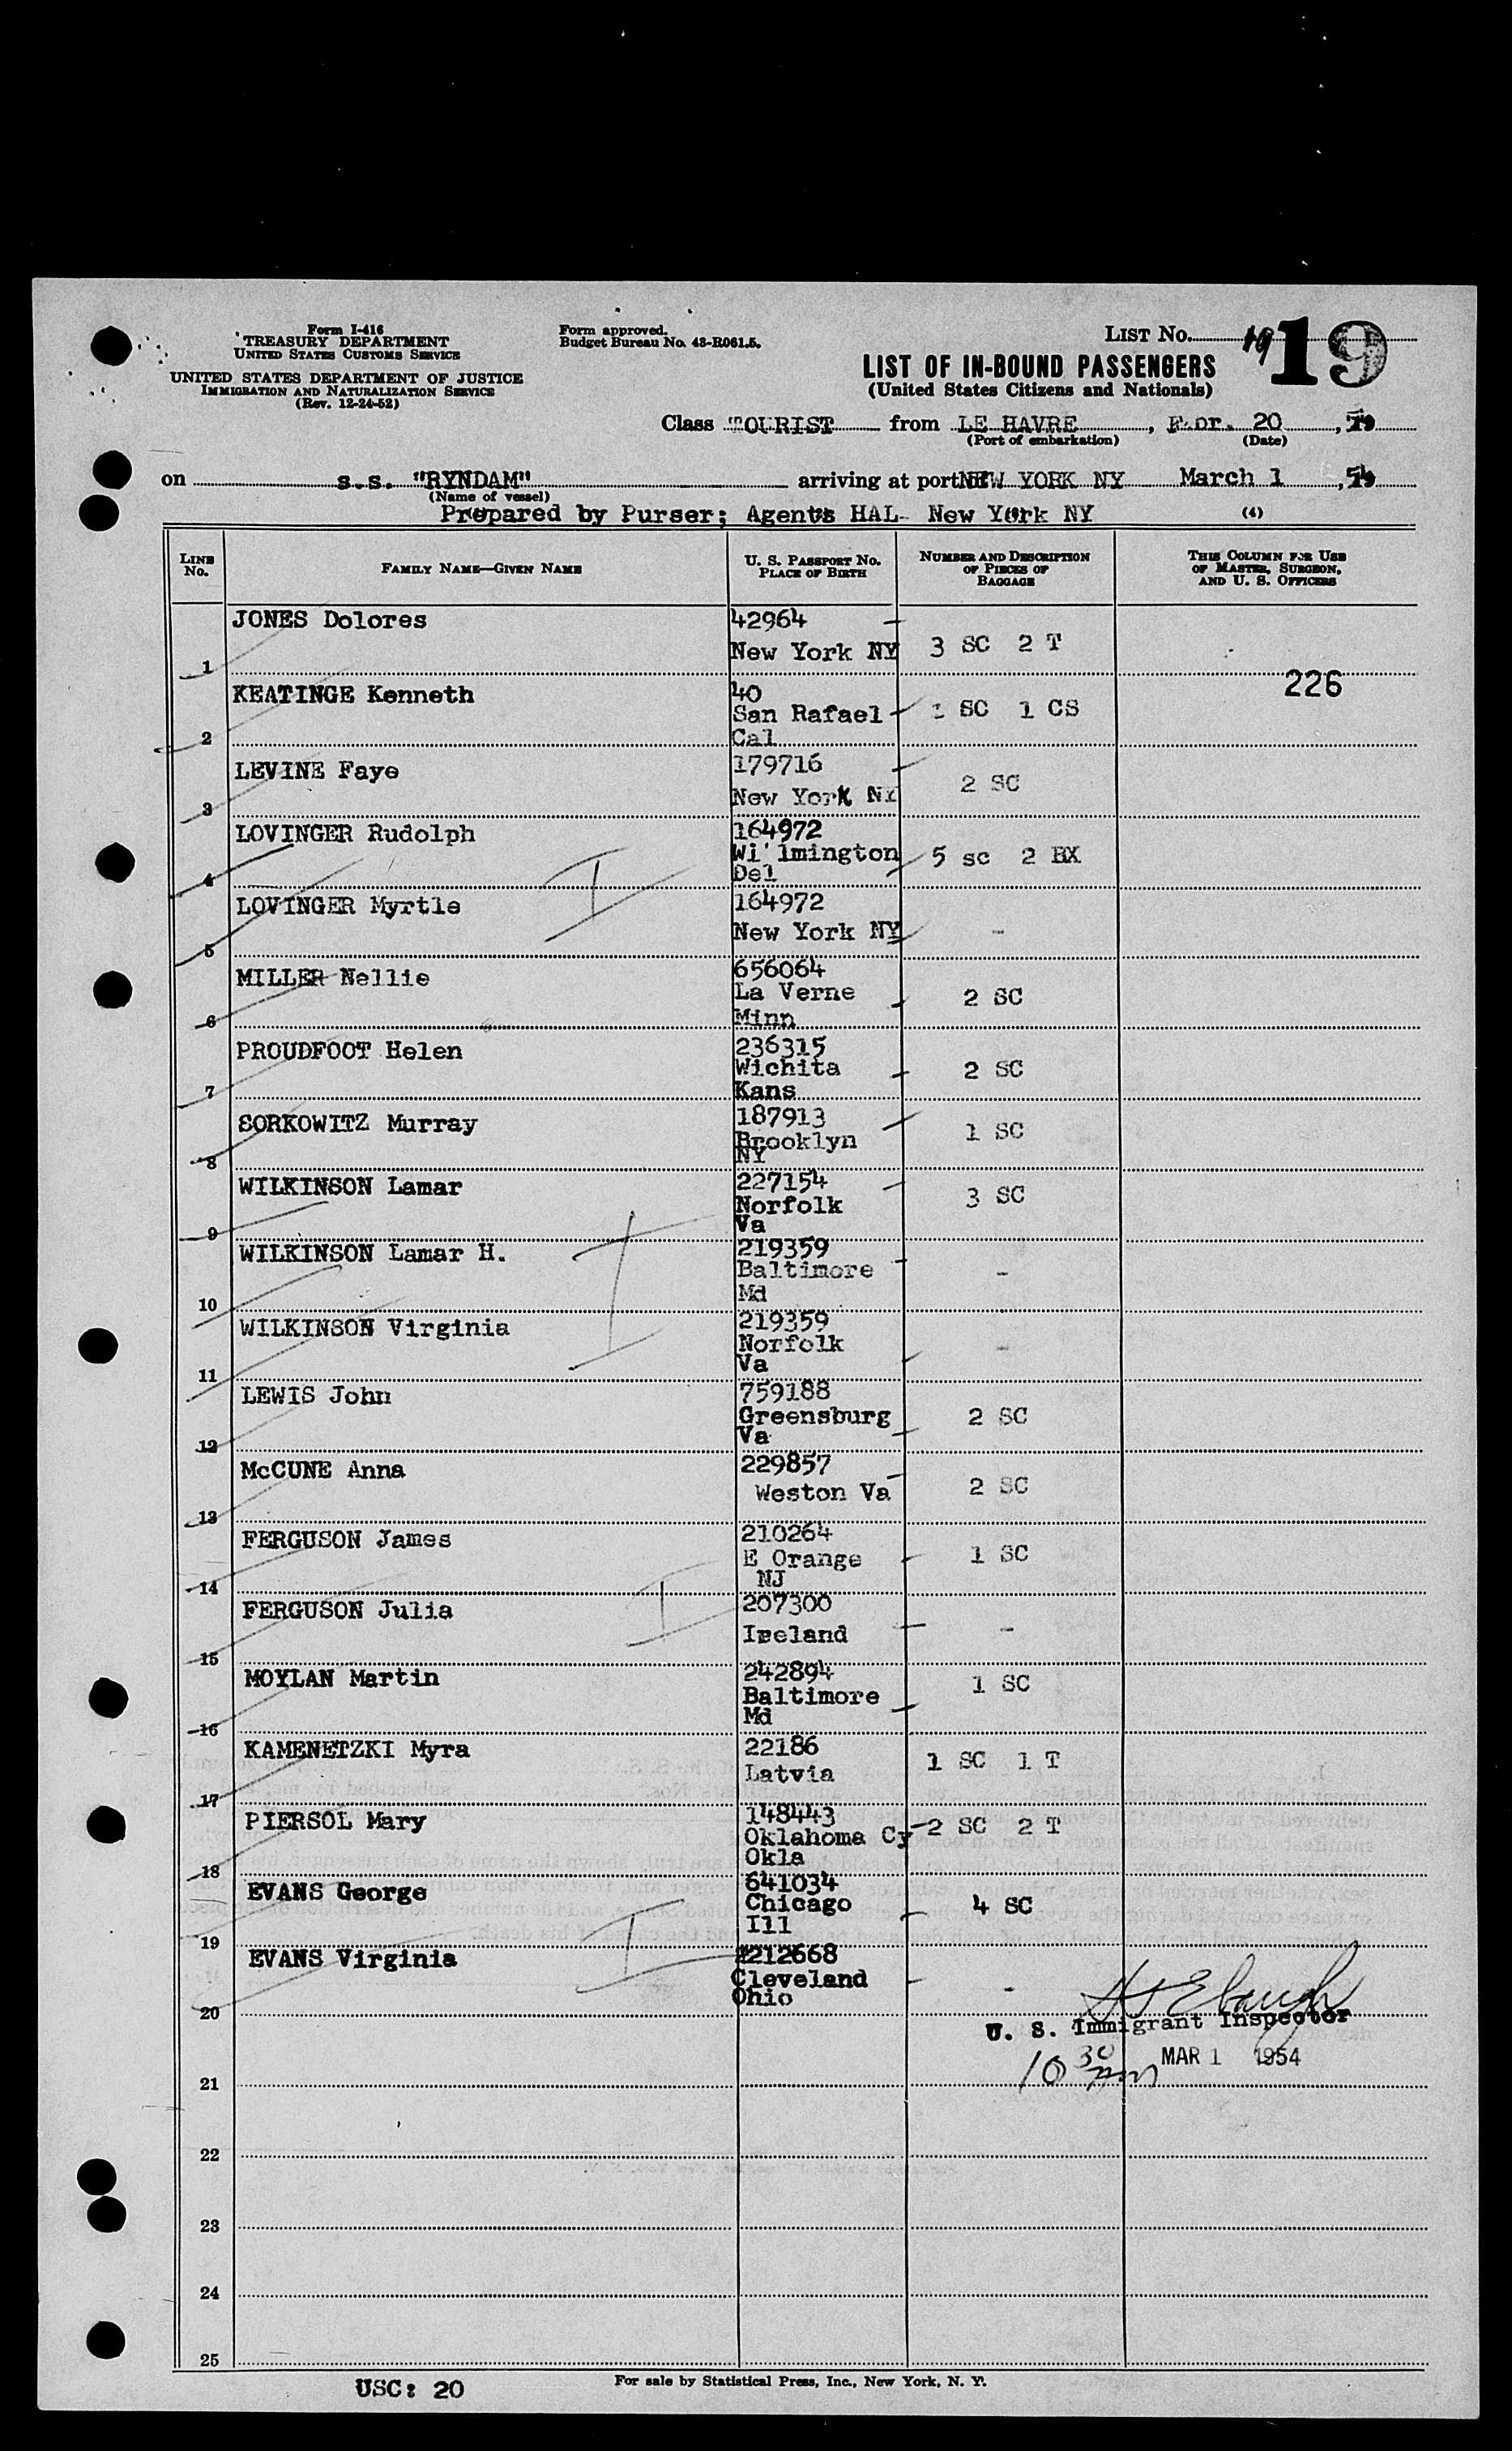 Form I-416
TREASURY DEPARTMENT
UNITED STATES CUSTOMS SERVICE
UNITED STATES DEPARTMENT OF JUSTICE
IMMIGRATION AND NATURALIZATION SERVICE
(Rev. 12-24-52)
Form approved.
Budget Bureau No. 43-R061.5.
LIST NO. 19 19
LIST OF IN-BOUND PASSENGERS
(United States Citizens and Nationals)
Class TOURIST from LE HAVRE, 20,
(Port of embarkation) (Date)
on s.s. "RYNDAM" arriving at port NEW YORK NY March 1, 54
(Name of vessel)
Prepared by Purser; Agents HAL- New York NY (4)
LINE NO. FAMILY NAME—GIVEN NAME U. S. PASSPORT NO. PLACE OF BIRTH NUMBER AND DESCRIPTION OF PIECES OF BAGGAGE THIS COLUMN FOR USE OF MASTER, SURGEON, AND U. S. OFFICERS
1 JONES Dolores 42964 New York NY 3 SC 2 T
226
2 KEATINGE Kenneth 40 San Rafael Cal 1 SC 1 CS
3 LEVINE Faye 179716 New York NY 2 SC
4 LOVINGER Rudolph 164972 Wi'lmington Del 5 sc 2 BX
5 LOVINGER Myrtle 164972 New York NY -
6 MILLER Nellie 656064 La Verne Minn 2 SC
7 PROUDFOOT Helen 236315 Wichita Kans 2 SC
8 SORKOWITZ Murray 187913 Brooklyn NY 1 SC
9 WILKINSON Lamar 227154 Norfolk Va 3 SC
10 WILKINSON Lamar H. 219359 Baltimore Md -
11 WILKINSON Virginia 219359 Norfolk Va -
12 LEWIS John 759188 Greensburg Va 2 SC
13 McCUNE Anna 229857 Weston Va 2 SC
14 FERGUSON James 210264 E Orange NJ 1 SC
15 FERGUSON Julia 207300 Ireland -
16 MOYLAN Martin 242894 Baltimore Md 1 SC
17 KAMENETZKI Myra 22186 Latvia 1 SC 1 T
18 PIERSOL Mary 148443 Oklahoma Cy Okla 2 SC 2 T
19 EVANS George 641034 Chicago Ill 4 SC
20 EVANS Virginia 2212668 Cleveland Ohio -
U. S. Immigrant Inspector
10 30 MAR 1 1954
21
22
23
24
25
USC: 20
For sale by Statistical Press, Inc., New York, N. Y.